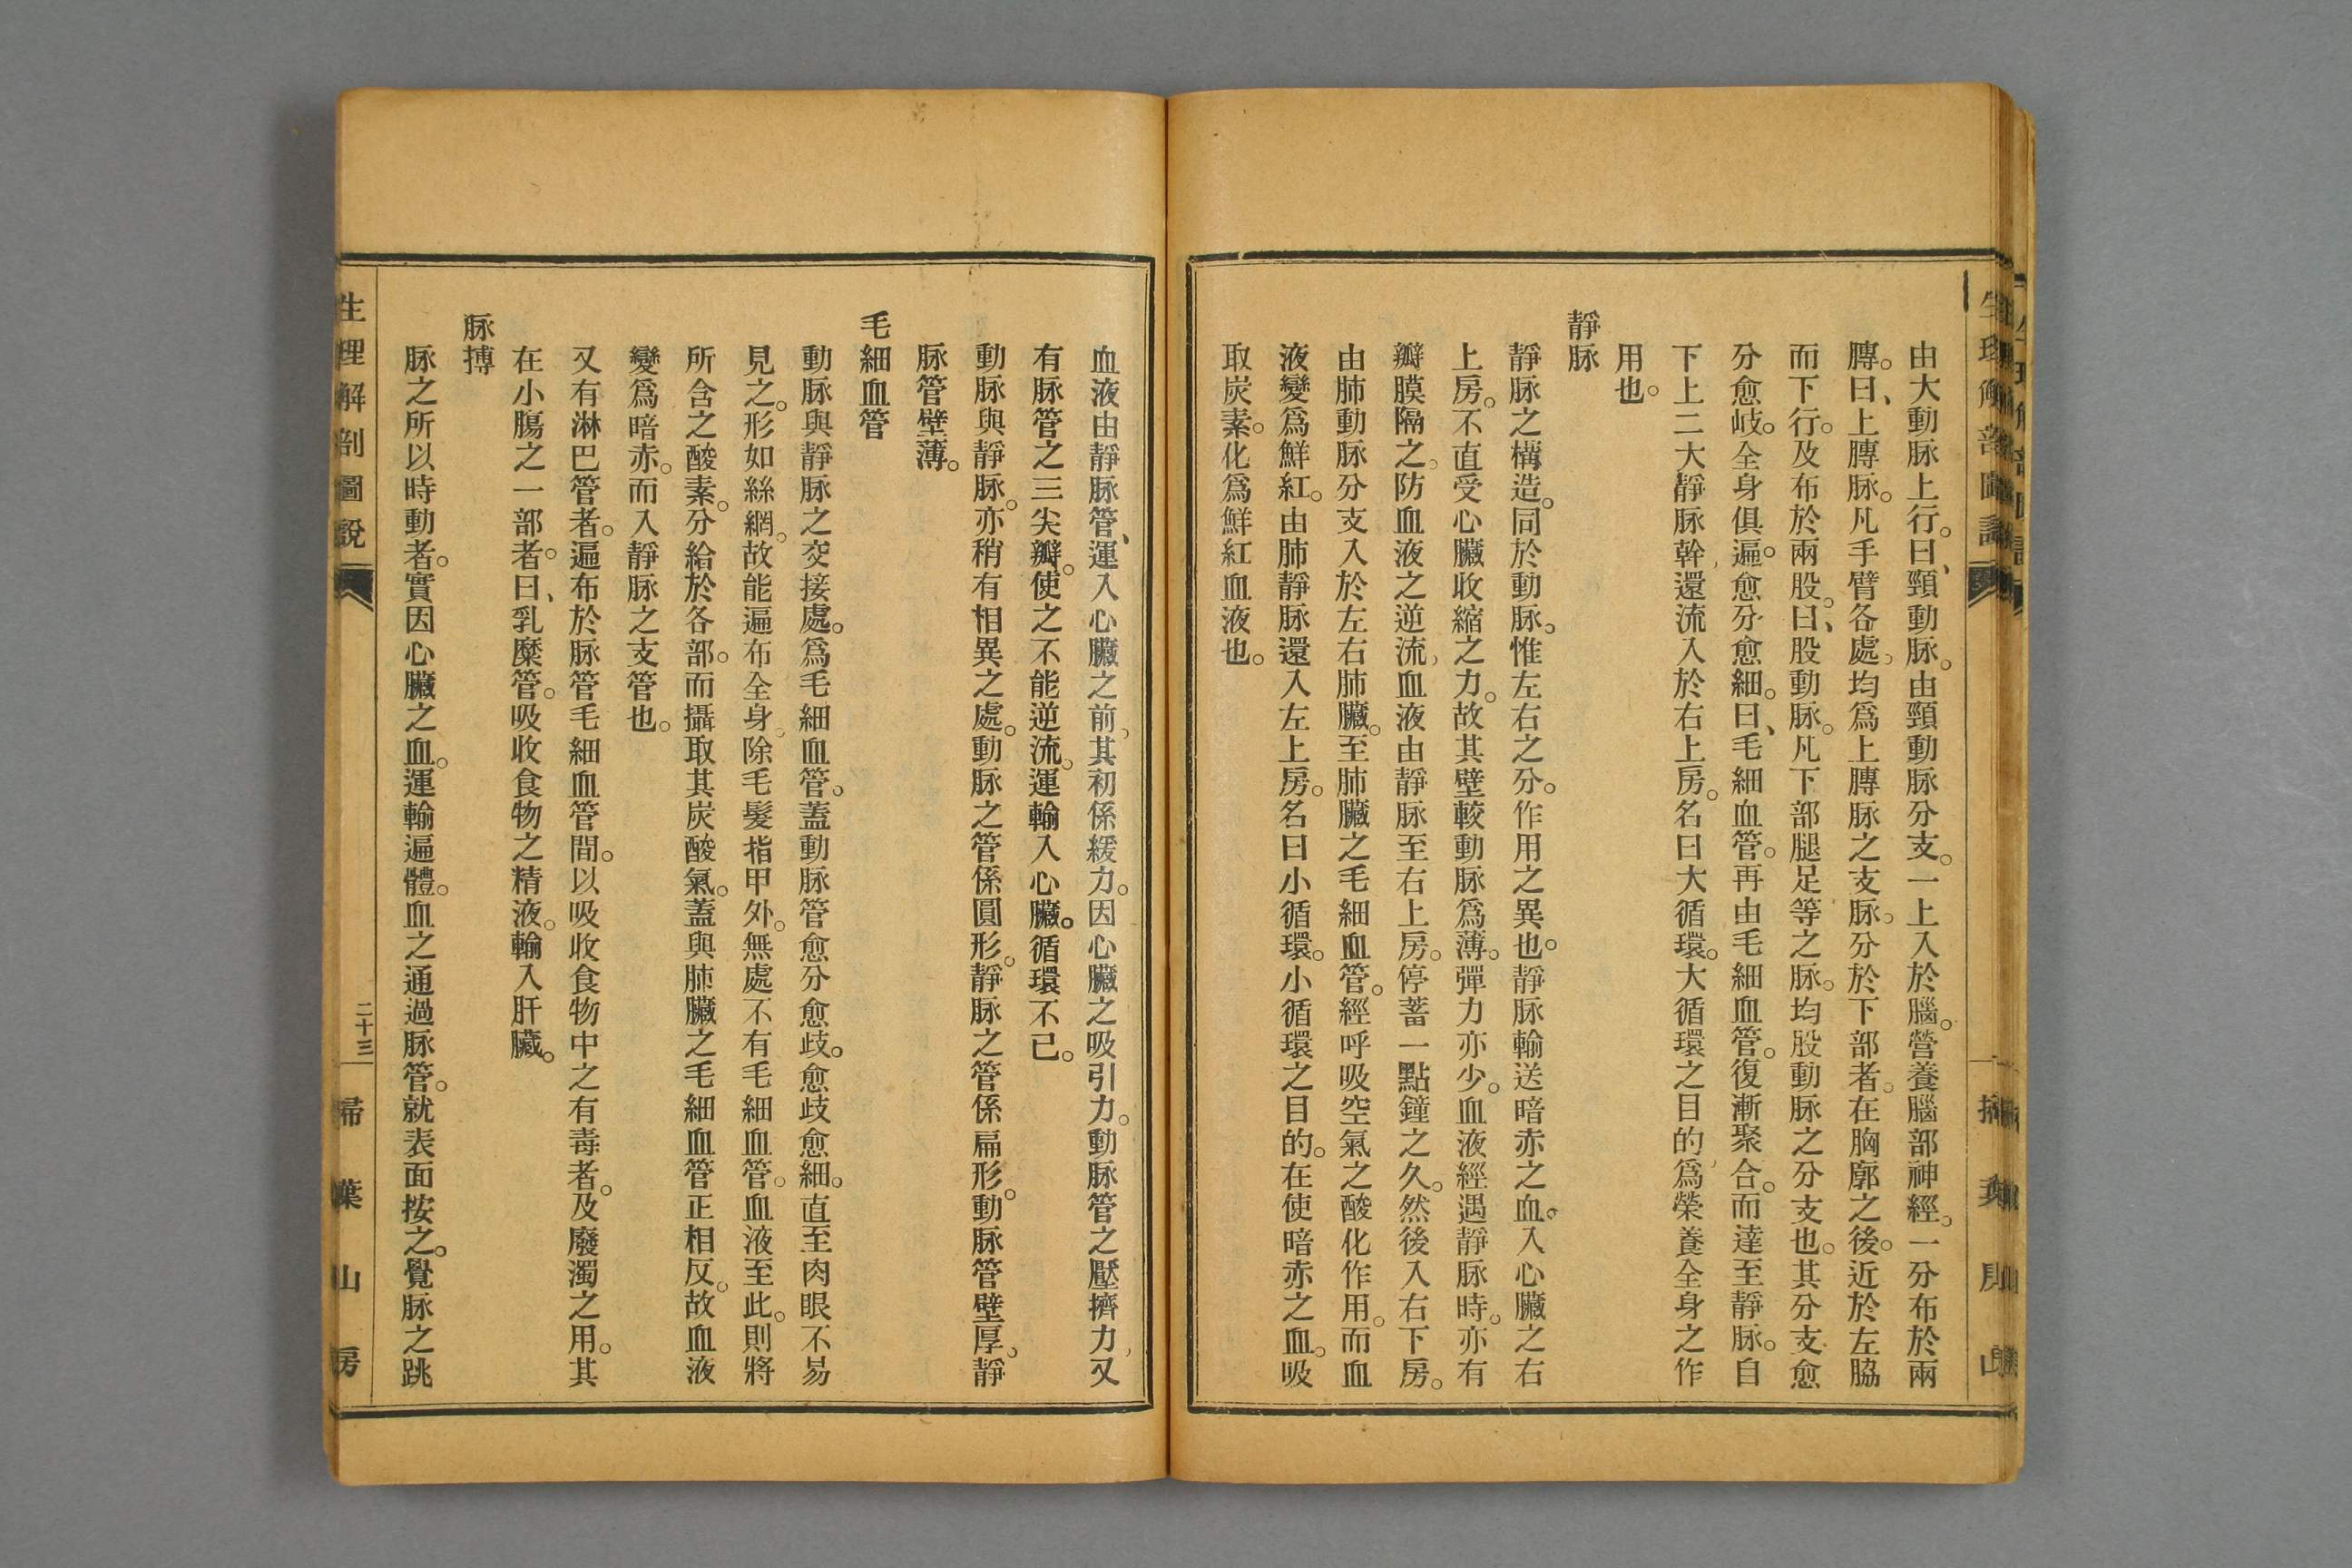 由大動脉上行。曰、頸動脉。由頸動脉分支。一上入於腦。營養腦部神經。一分布於兩
膊。曰、上膊脉。凡手臂各處。均爲上膊脉之支脉。分於下部者。在胸廓之後。近於左脇
而下行。及布於兩股。曰、股動脉。凡下部腿足等之脉。均股動脉之分支也。其分支愈
分愈岐。全身俱遍。愈分愈細。曰、毛細血管。再由毛細血管。復漸聚合。而達至靜脉。自
下上二大靜脉幹。還流入於右上房。名曰大循環。大循環之目的。爲榮養全身之作
用也。
靜脉
靜脉之構造。同於動脉。惟左右之分。作用之異也。靜脉輸送暗赤之血。入心臟之右
上房。不直受心臟收縮之力。故其壁較動脉爲薄。彈力亦少。血液經遇靜脉時。亦有
瓣膜隔之。防血液之逆流。血液由靜脉至右上房。停蓄一點鐘之久。然後入右下房。
由肺動脉分支入於左右肺臟。至肺臟之毛細血管。經呼吸空氣之酸化作用。而血
液變爲鮮紅。由肺靜脉還入左上房。名曰小循環。小循環之目的。在使暗赤之血。吸
取炭素。化爲鮮紅血液也。
血液由靜脉管、運入心臟之前。其初係緩力。因心臟之吸引力。動脉管之壓擠力。又
有脉管之三尖瓣。使之不能逆流。運輸入心臟。循環不已。
動脉與靜脉。亦稍有相異之處。動脉之管係圓形。靜脉之管係扁形。動脉管壁厚。靜
脉管壁薄。
毛細血管
動脉與靜脉之交接處。爲毛細血管。蓋動脉管愈分愈歧。愈歧愈細。直至肉眼不易
見之。形如絲網。故能遍布全身。除毛髮指甲外。無處不有毛細血管。血液至此。則將
所含之酸素。分給於各部。而攝取其炭酸氣。蓋與肺臟之毛細血管正相反。故血液
變爲暗赤。而入靜脉之支管也。
又有淋巴管者。遍布於脉管毛細血管間。以吸收食物中之有毒者。及廢濁之用。其
在小膓之一部者。曰、乳糜管。吸收食物之精液。輸入肝臟。
脉搏
脉之所以時動者。實因心臟之血。運輸遍體。血之通過脉管。就表面按之。覺脉之跳
生理解剖圖說
二十三
掃葉山房